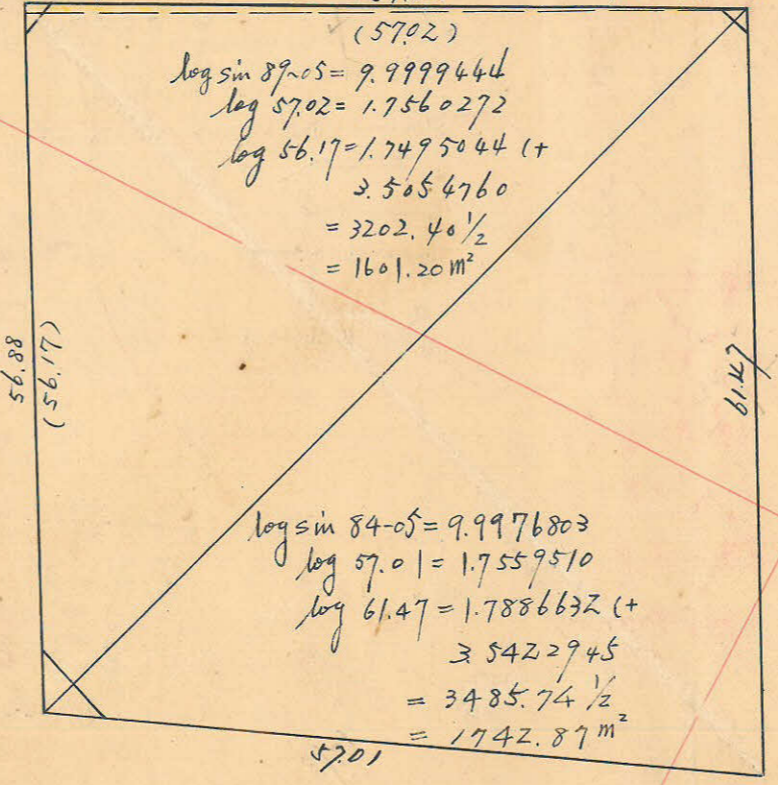 (57.02)
log sin 89-05 = 9.9999444
log 57.02 = 1.7560272
log 56.17 = 1.7495044 (+
3.5054760
= 3202.40 1/2
= 1601.20 m²
56.88
(56.17)
61.47
log sin 84-05 = 9.9976803
log 57.01 = 1.7559510
log 61.47 = 1.7886632 (+
3.5422945
= 3485.74 1/2
= 1742.87 m²
57.01